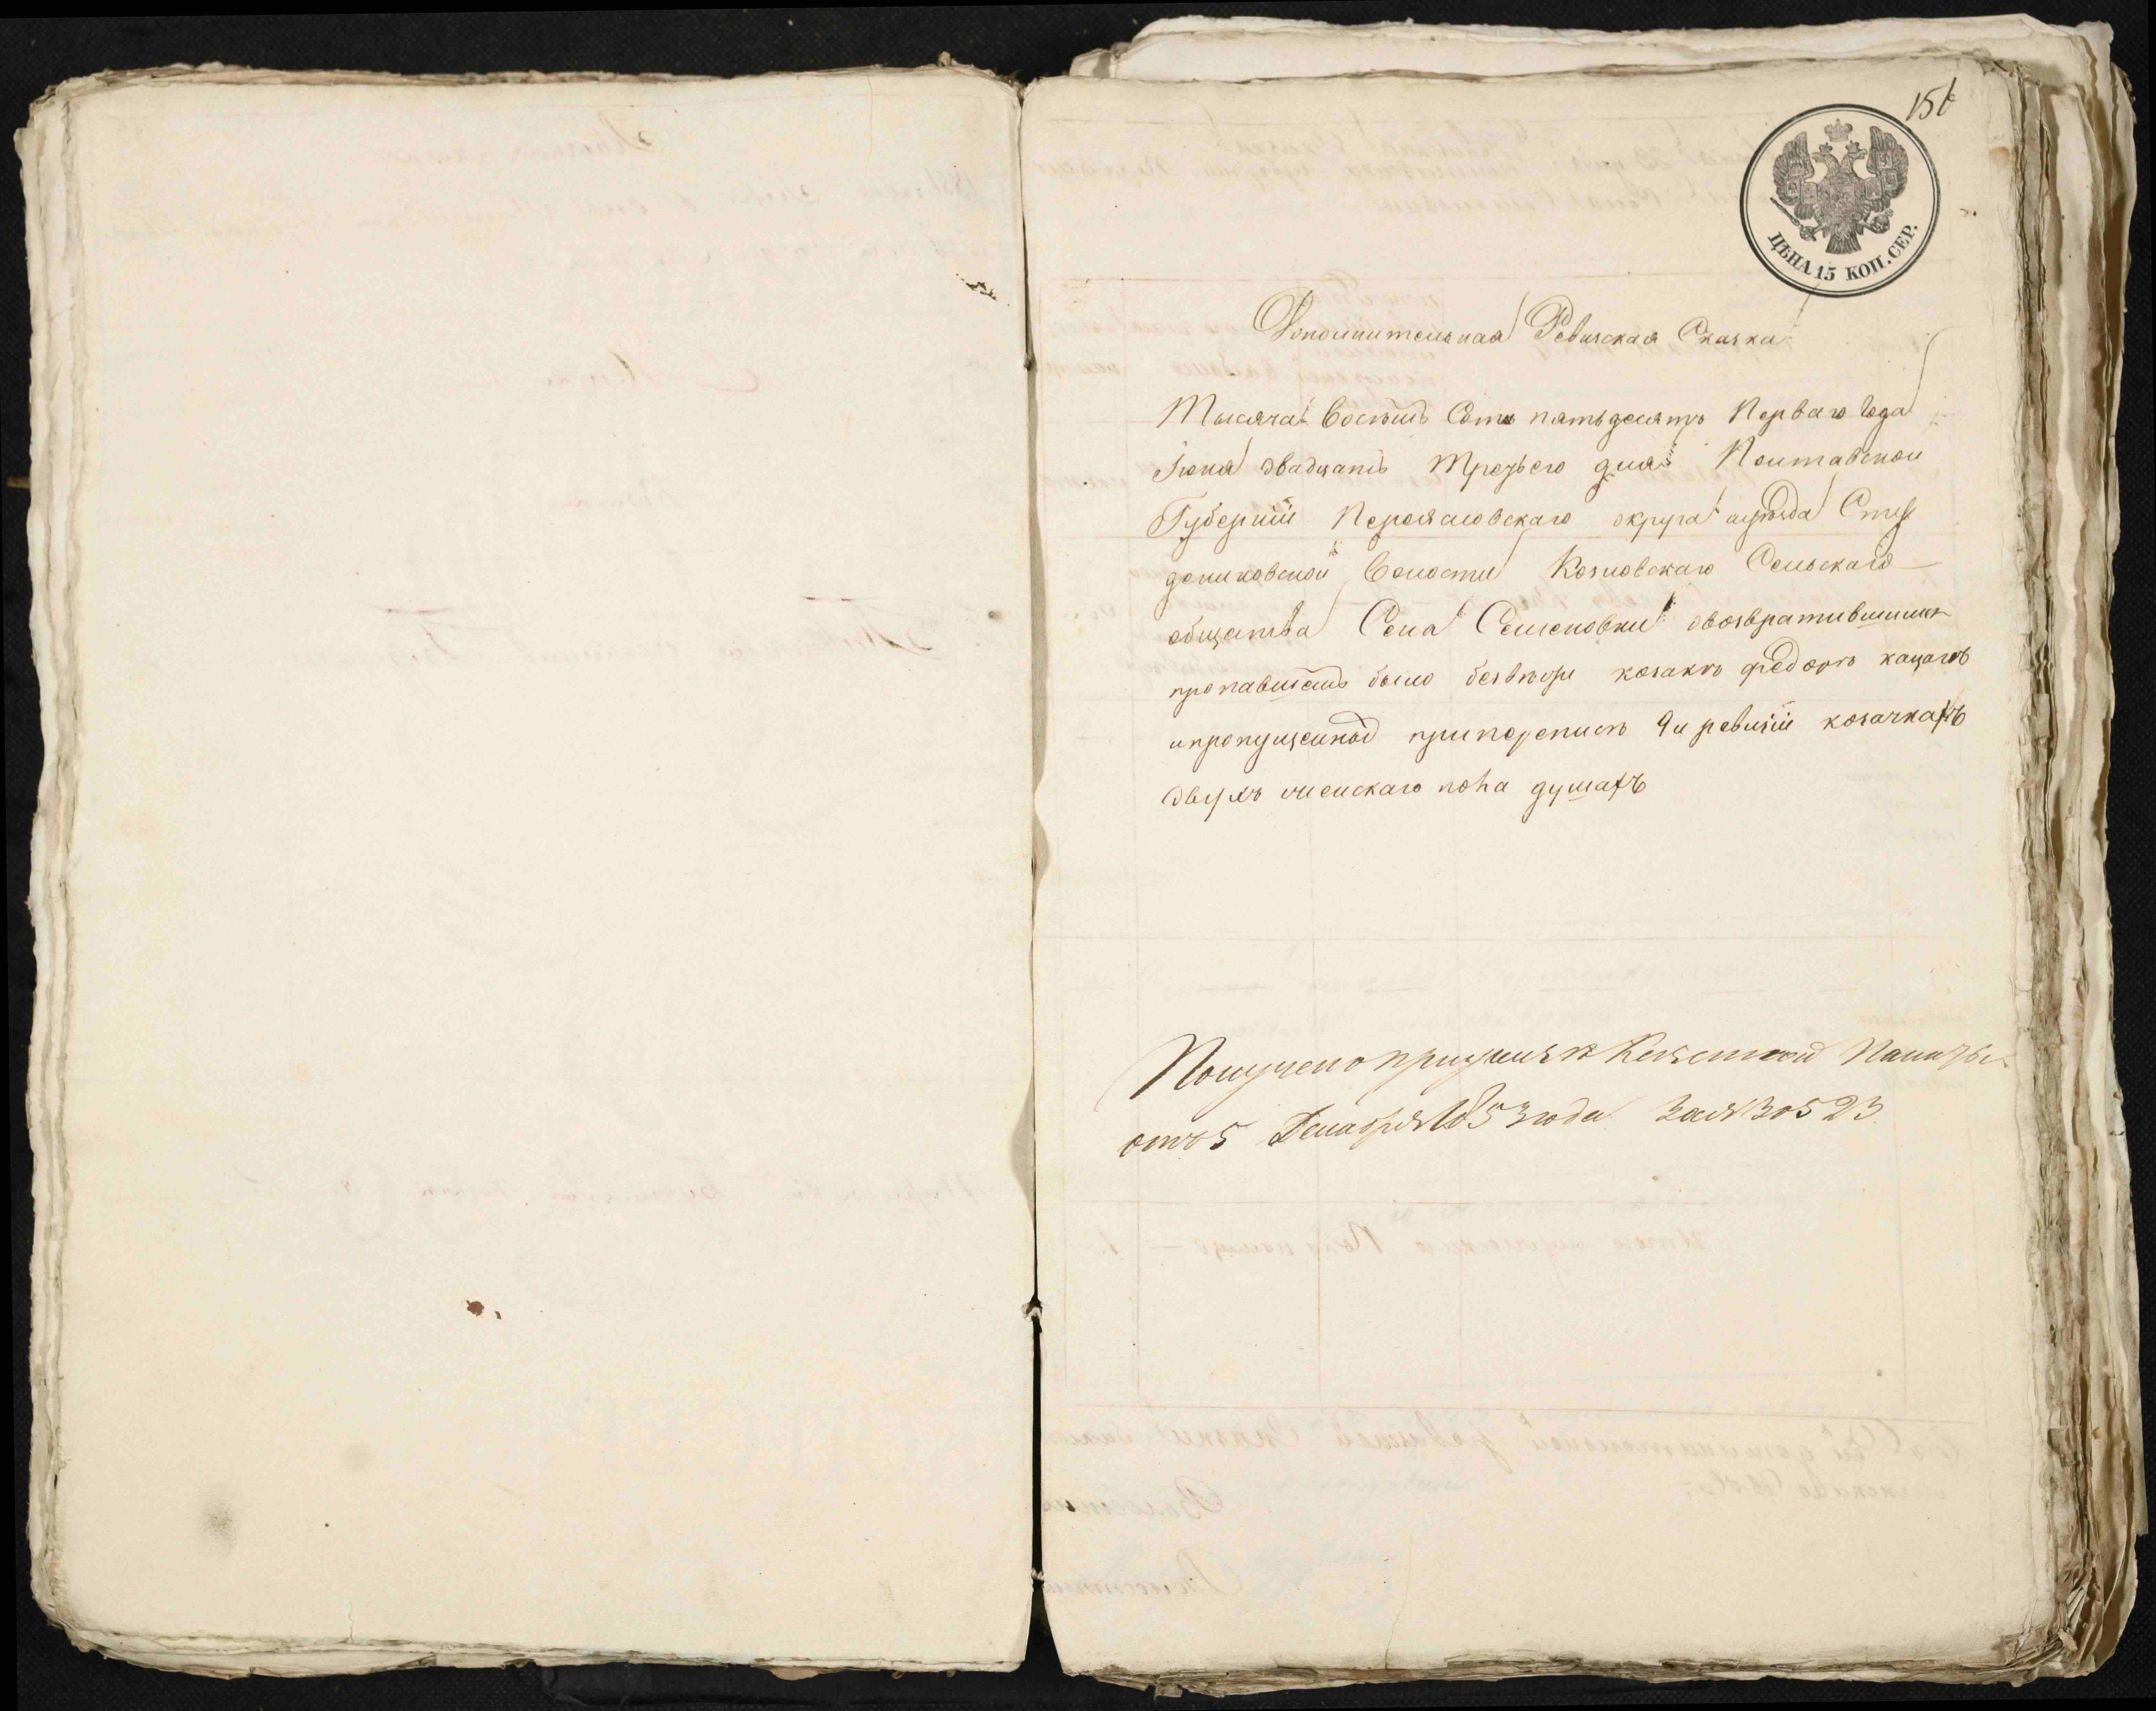 151
ЦѢНА 15 КОП. СЕР.
Дополнительная Ревизская Сказка
Тысяча восемь Сотъ пятьдесятъ Перваго года
Іюня двадцать Третьего дня Полтавской
Губерніи Переяславскаго округа
дениковской Волости Козловскаго Сельскаго
общества Села Семеновки овозвратившимся
пропавшемъ было безвести козакѣ Федорѣ
ипропущенной приперепись 9й ревизіи козачкахъ
двухъ женскаго пола душахъ
Получено при указѣ Казенной Палаты
отъ 5 Декабря 1853 года за № 30523